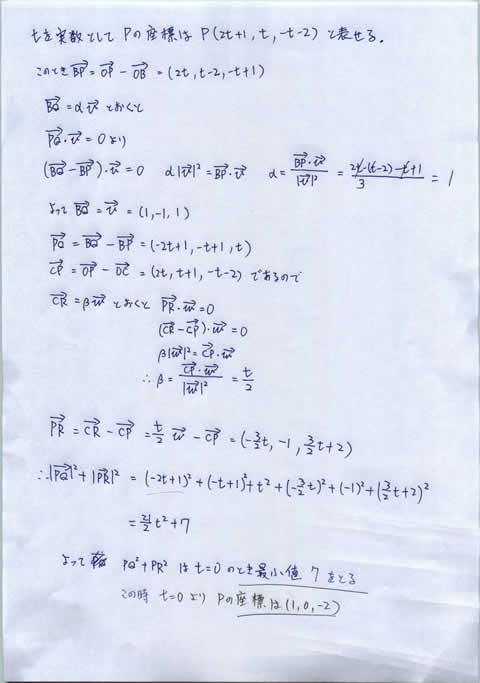 tを実数として Pの座標は P(2t+1, t, -t-2) と表せる。
このとき \overrightarrow{BP} = \overrightarrow{OP} - \overrightarrow{OB} = (2t, t-2, -t+1)
\overrightarrow{BQ} = α\overrightarrow{v} とおくと
\overrightarrow{PQ}・\overrightarrow{v} = 0 より
(\overrightarrow{BQ} - \overrightarrow{BP})・\overrightarrow{v} = 0 α|\overrightarrow{v}|² = \overrightarrow{BP}・\overrightarrow{v} α = \frac{\overrightarrow{BP}・\overrightarrow{v}}{|\overrightarrow{v}|²} = \frac{2t-(t-2)-t+1}{3} = 1
よって \overrightarrow{BQ} = \overrightarrow{v} = (1, -1, 1)
\overrightarrow{PQ} = \overrightarrow{BQ} - \overrightarrow{BP} = (-2t+1, -t+1, t)
\overrightarrow{CP} = \overrightarrow{OP} - \overrightarrow{OC} = (2t, t+1, -t-2) であるので
\overrightarrow{CR} = β\overrightarrow{w} とおくと \overrightarrow{PR}・\overrightarrow{w} = 0
(\overrightarrow{CR} - \overrightarrow{CP})・\overrightarrow{w} = 0
β|\overrightarrow{w}|² = \overrightarrow{CP}・\overrightarrow{w}
∴ β = \frac{\overrightarrow{CP}・\overrightarrow{w}}{|\overrightarrow{w}|²} = \frac{t}{2}
\overrightarrow{PR} = \overrightarrow{CR} - \overrightarrow{CP} = \frac{t}{2}\overrightarrow{w} - \overrightarrow{CP} = (-\frac{3}{2}t, -1, \frac{3}{2}t+2)
∴ |\overrightarrow{PQ}|² + |\overrightarrow{PR}|² = (-2t+1)² + (-t+1)² + t² + (-\frac{3}{2}t)² + (-1)² + (\frac{3}{2}t+2)²
= \frac{21}{2}t² + 7
よって PQ² + PR² は t=0 のとき最小値 7 をとる
この時 t=0 より Pの座標は (1, 0, -2)